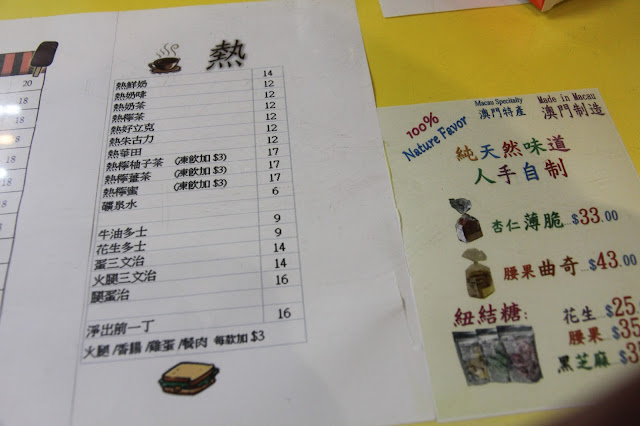 20
18
18
18
18
18
熱
熱鮮奶 14
熱奶啡 12
熱奶茶 12
熱檸茶 12
熱好立克 12
熱朱古力 12
熱華田 12
熱檸柚子茶 (凍飲加 $3) 17
熱檸薑茶 (凍飲加 $3) 17
熱檸蜜 (凍飲加 $3) 17
礦泉水 6
牛油多士 9
花生多士 9
蛋三文治 14
火腿三文治 14
腿蛋治 16
淨出前一丁 16
火腿/香腸/雞蛋/餐肉 每款加 $3
100%
Nature Favor
Macau Specialty
澳門特產
Made in Macau
澳門制造
純天然味道
人手自制
杏仁薄脆...$33.00
腰果曲奇...$43.00
紐結糖: 花生 $25
腰果 $35
黑芝麻 $3